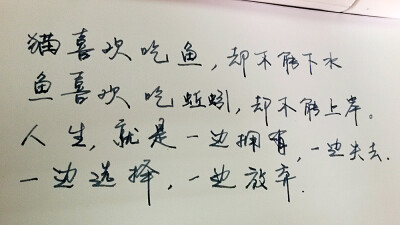 猫喜欢吃鱼，却不能下水
鱼喜欢吃蚯蚓，却不能上岸。
人生，就是一边拥有，一边失去.
一边选择，一边放弃.